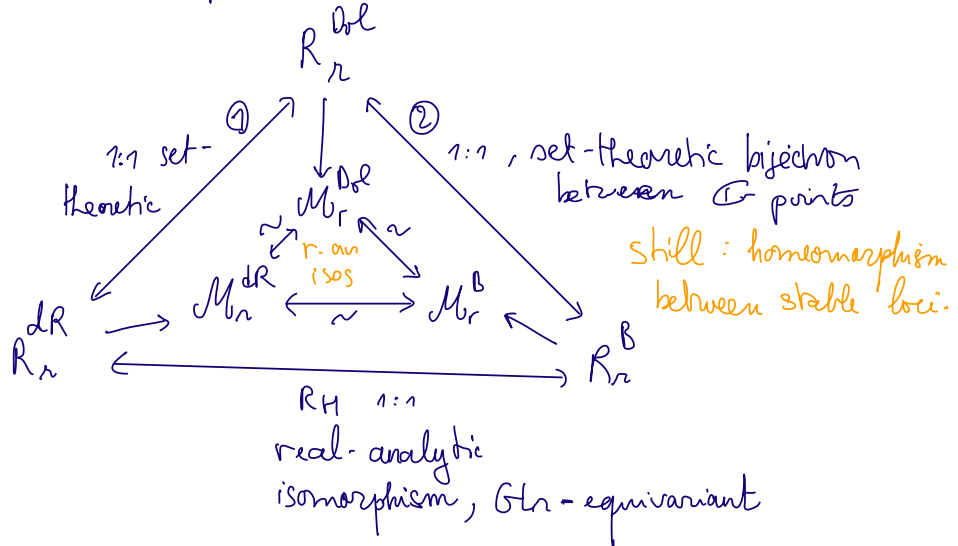 R_r^Dol
① ②
1:1 set-
theoretic
1:1, set-theoretic bijection
between ℂ points
M_r^Dol
~ ~
r. an
isos
still : homeomorphism
between stable loci.
M_r^dR M_r^B
~
R_r^dR R_r^B
RH 1:1
real-analytic
isomorphism, GLr-equivariant